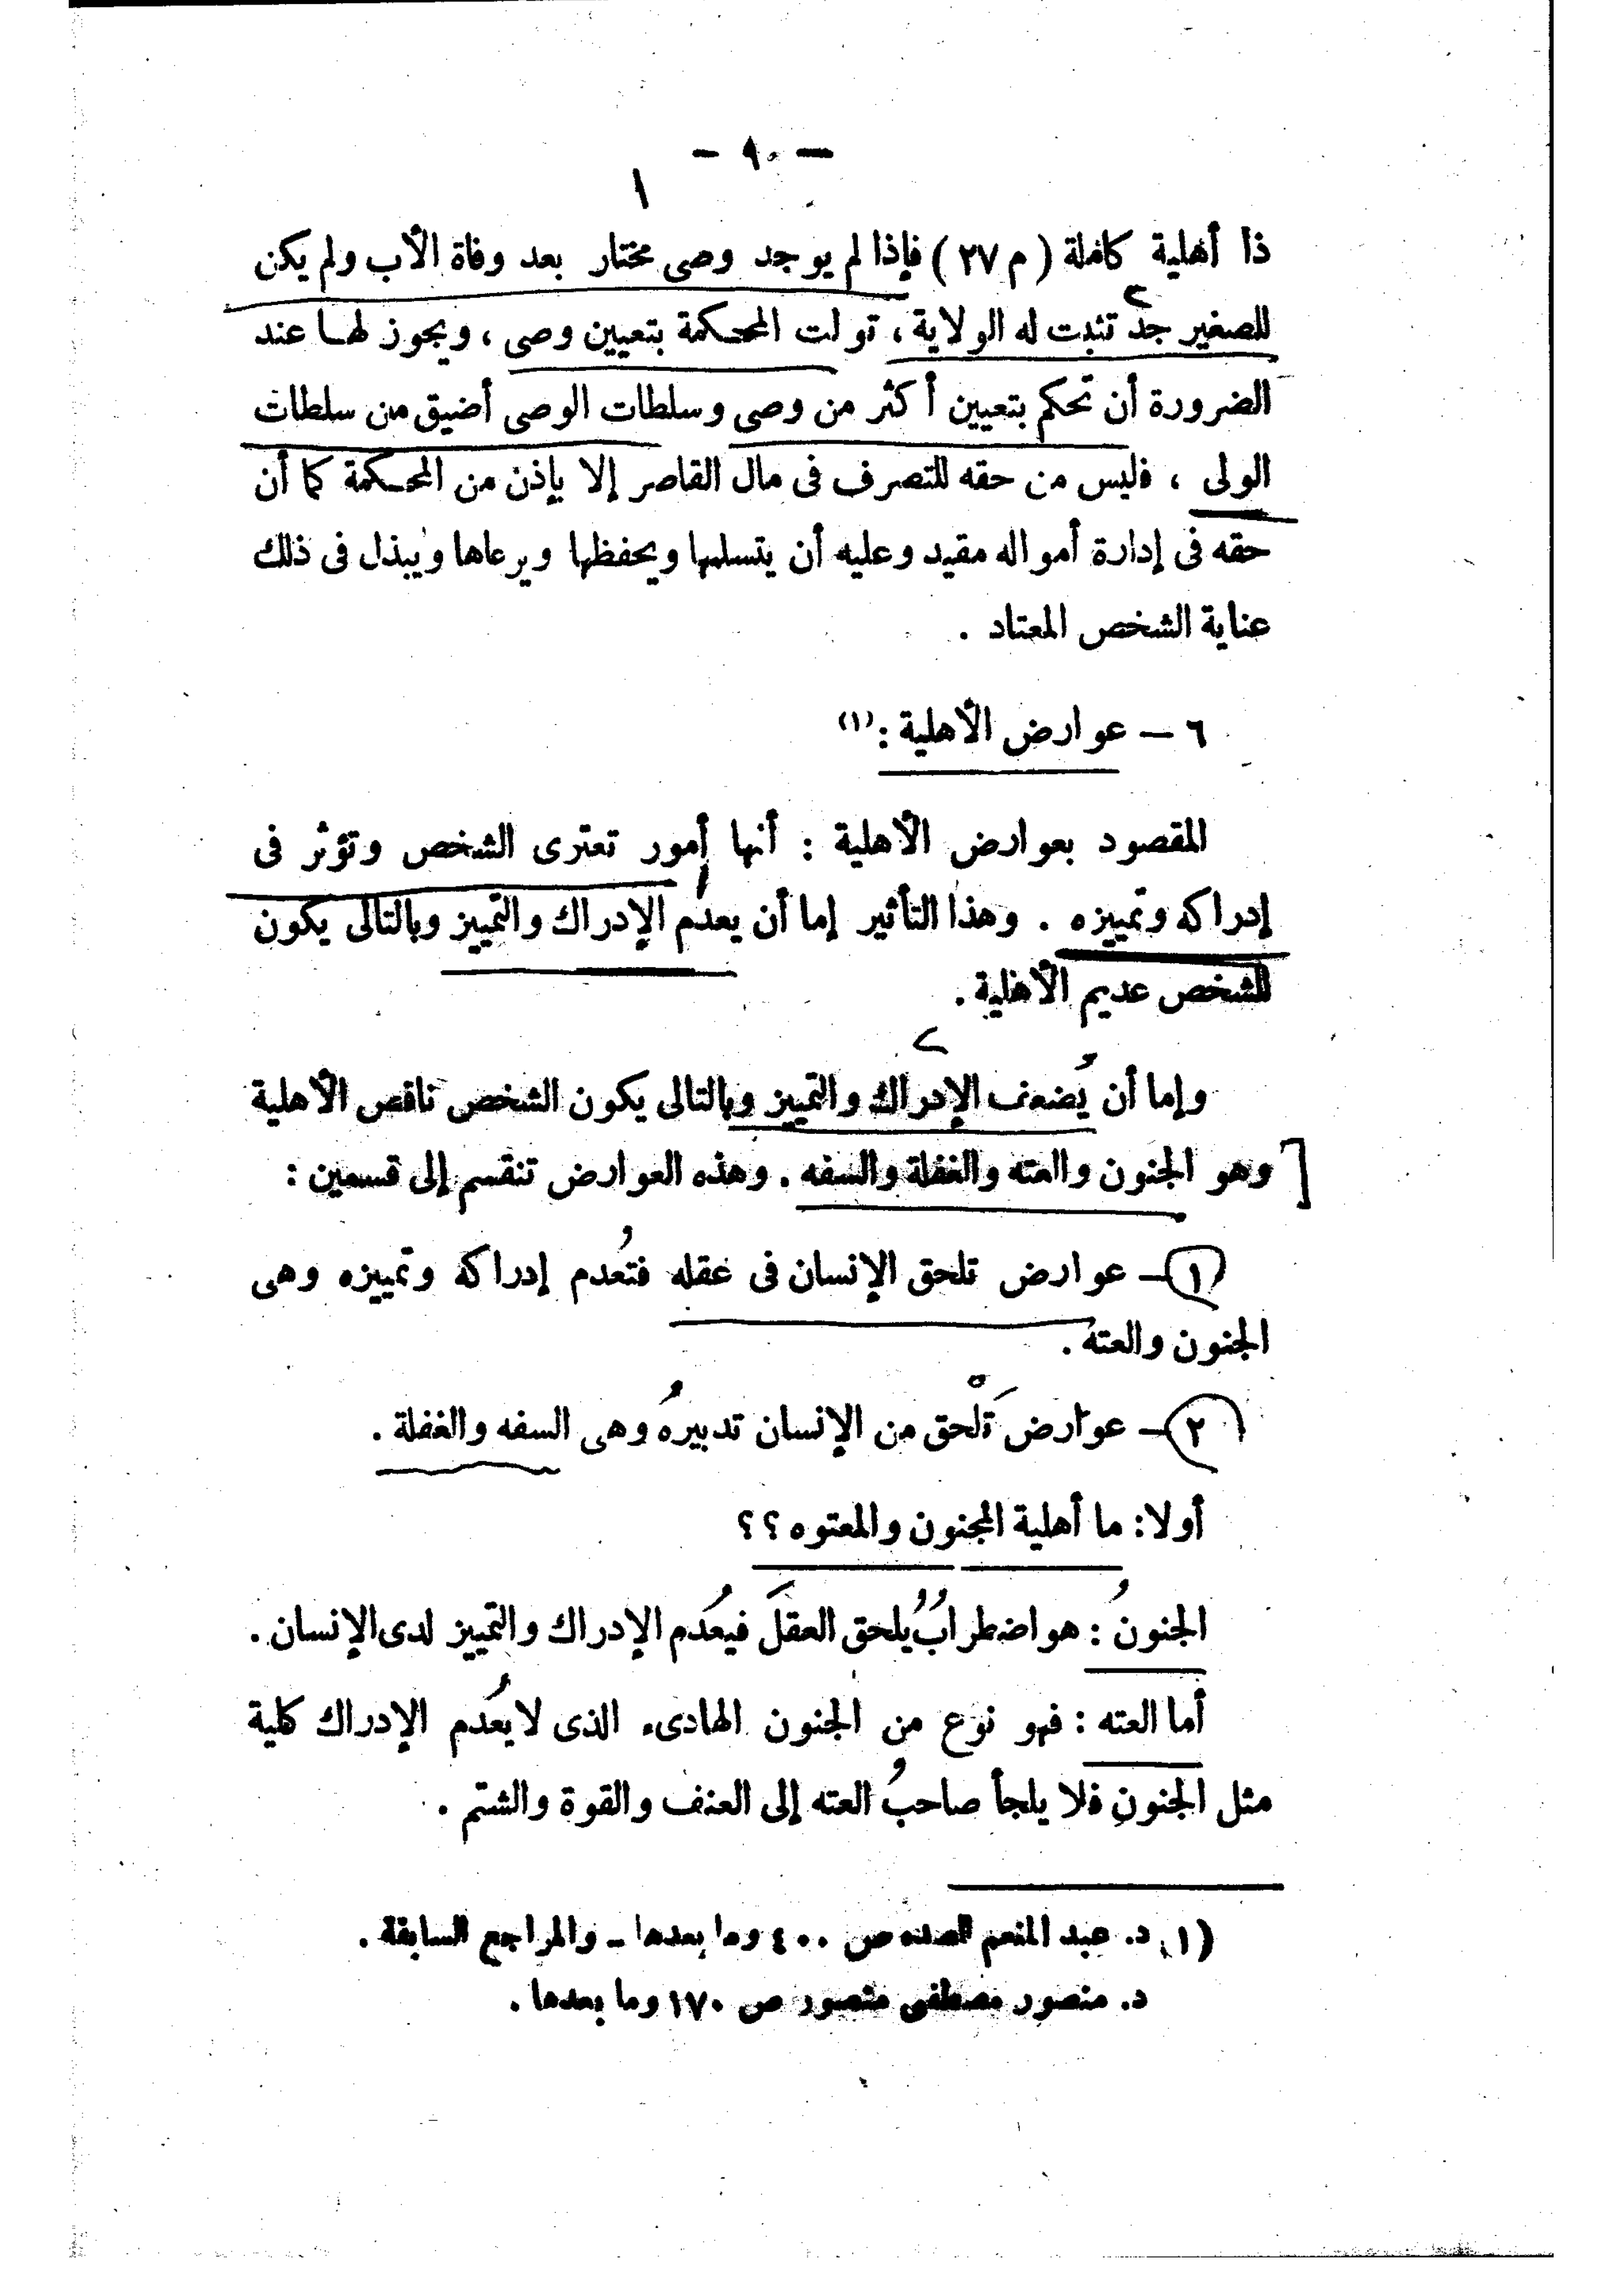 - ٩٠ -
ذا أهلية كاملة ( م ٢٧ ) فإذا لم يوجد وصى مختار بعد وفاة الأب ولم يكن
للصغير جد تثبت له الولاية ، تولت المحكمة بتعيين وصى ، ويجوز لها عند
الضرورة أن تحكم بتعيين أكثر من وصى وسلطات الوصى أضيق من سلطات
الولى ، فليس من حقه للتصرف فى مال القاصر إلا بإذن من المحكمة كما أن
حقه فى إدارة أمواله مقيد وعليه أن يتسلمها ويحفظها ويرعاها ويبذل فى ذلك
عناية الشخص المعتاد .
٦ – عوارض الأهلية :(١)
المقصود بعوارض الأهلية : أنها أمور تعترى الشخص وتؤثر فى
إدراكه وتمييزه . وهذا التأثير إما أن يعدم الإدراك والتمييز وبالتالى يكون
للشخص عديم الأهلية .
وإما أن يُضعف الإدراك والتمييز وبالتالى يكون الشخص ناقص الأهلية
وهو الجنون والعته والغفلة والسفه . وهذه العوارض تنقسم إلى قسمين :
١ – عوارض تلحق الإنسان فى عقله فتُعدم إدراكه وتمييزه وهى
الجنون والعته .
٢ – عوارض تَلْحق من الإنسان تدبيرُه وهى السفه والغفلة .
أولا: ما أهلية المجنون والمعتوه ؟ ؟
الجنونُ : هو اضطرابٌ يلحق العقلَ فيُعدم الإدراك والتمييز لدى الإنسان .
أما العته : فهو نوع من الجنون الهادىء الذى لا يُعدم الإدراك كلية
مثل الجنونِ فلا يلجأ صاحبُ العته إلى العنف والقوة والشتم .
(١) د. عبد المنعم الصده ص ٤٠٠ وما بعدها – والمراجع السابقة .
د. منصور مصطفى منصور ص ١٧٠ وما بعدها .